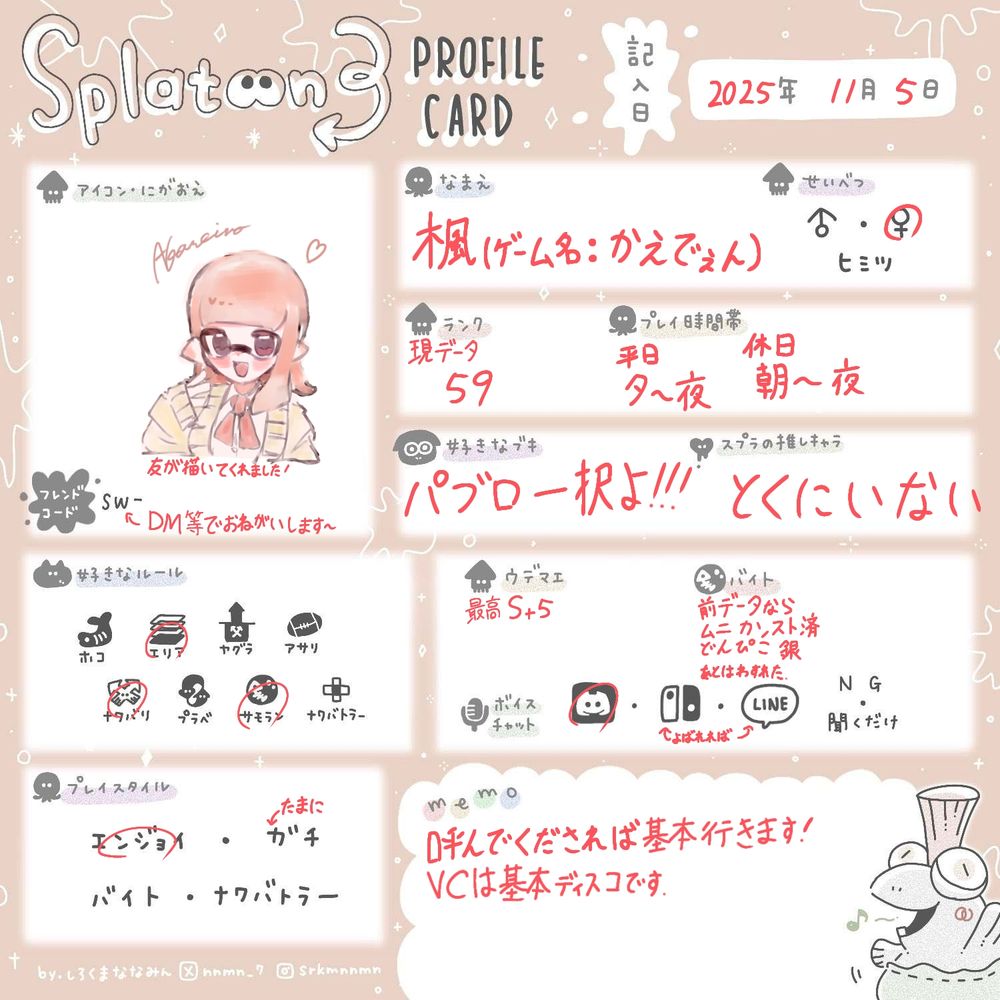 Splatoon3
PROFILE
CARD
記入日
2025年 11月 5日
アイコン・にがおえ
Akaneiro
友が描いてくれました!
フレンド
コード
SW-
DM等でおねがいします~
なまえ
楓(ゲーム名:かえでぇん)
せいべつ
♂・♀
ヒミツ
ランク
現データ
59
プレイ時間帯
平日
夕~夜
休日
朝~夜
好きなブキ
パブロ一択よ!!!
スプラの推しキャラ
とくにいない
好きなルール
ホコ エリア ヤグラ アサリ
ナワバリ プラベ サモラン ナワバトラー
ウデマエ
最高 S+5
バイト
前データなら
ムニ カンスト済
どんぴこ 銀
あとはわすれた.
ボイス
チャット
・ ・ LINE
よばれれば
NG
・
聞くだけ
プレイスタイル
エンジョイ ・ ガチ
たまに
バイト ・ ナワバトラー
memo
呼んでくだされば基本行きます!
VCは基本ディスコです.
by.しろくまななみん X nnmn_7 srkmnnmn